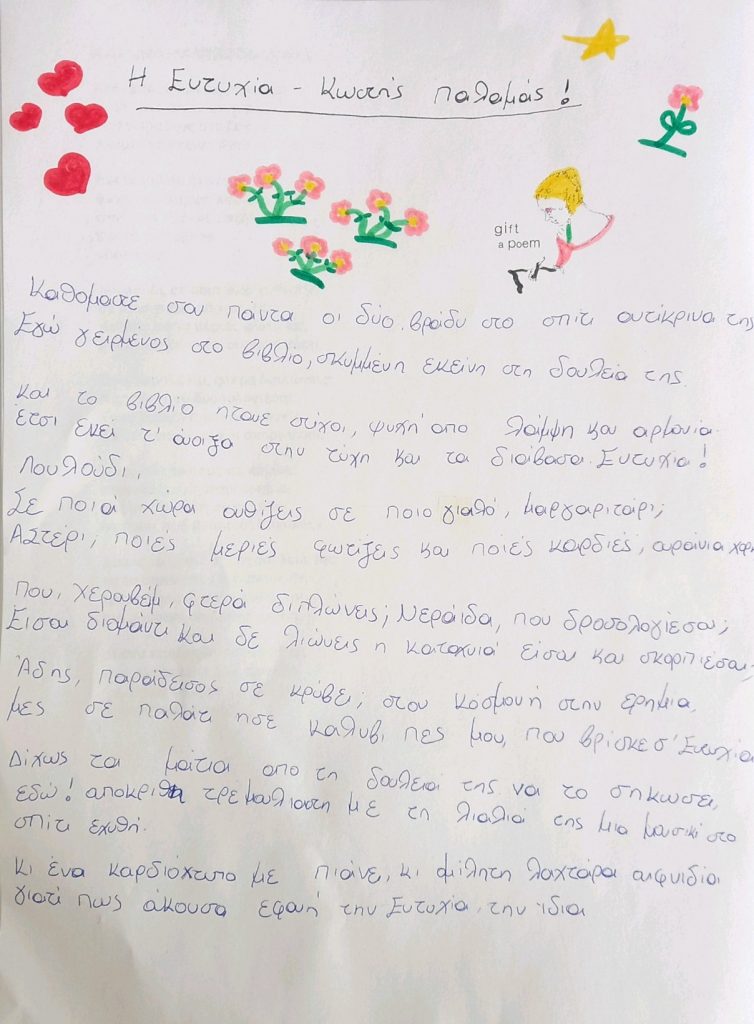 Η Ευτυχία - Κωστής Παλαμάς!
gift
a poem
Καθόμαστε σαν πάντα οι δύο βράδυ στο σπίτι αντίκρινα της
Εγώ γειρμένος στο βιβλίο, σκυμμένη εκείνη στη δουλεία της
και το βιβλίο ητανε στίχοι, ψυχή απο λάμψη και αρμονία.
έτσι εκεί τ' άνοιξα στην τύχη και τα διάβασα. Ευτυχία!
Λουλούδι,
Σε ποιά χώρα ανθίζεις σε ποιο γιαλό, μαργαριτάρι;
Αστέρι, ποιές μεριές φωτίζεις και ποιές καρδιές, ουράνια χάρη
που, χερουβέμ, φτερά διπλώνεις; Νεράιδα, που δροσολογιέσαι;
Είσαι διαμάντι και δε λιώνεις η καταχνιά είσαι και σκορπιέσαι;
Άδης, παράδεισος σε κρύβει; στου κόσμου ή στην ερημια,
μες σε παλάτι ησε καλύβι πες μου, που βρίσκεσ' Ευτυχία
Δίχως τα μάτια απο τη δουλειά της να το σηκωσει,
εδώ! αποκριθη τρεμουλιαστη με τη λιαλιά της μια μουσική στο
σπίτι εχυθή.
κι ένα καρδιόχτυπο με πιάνε, κι αμίλητη λαχτάρα αιφνιδια
γιατί πως άκουσα εφανή την Ευτυχία, την ίδια